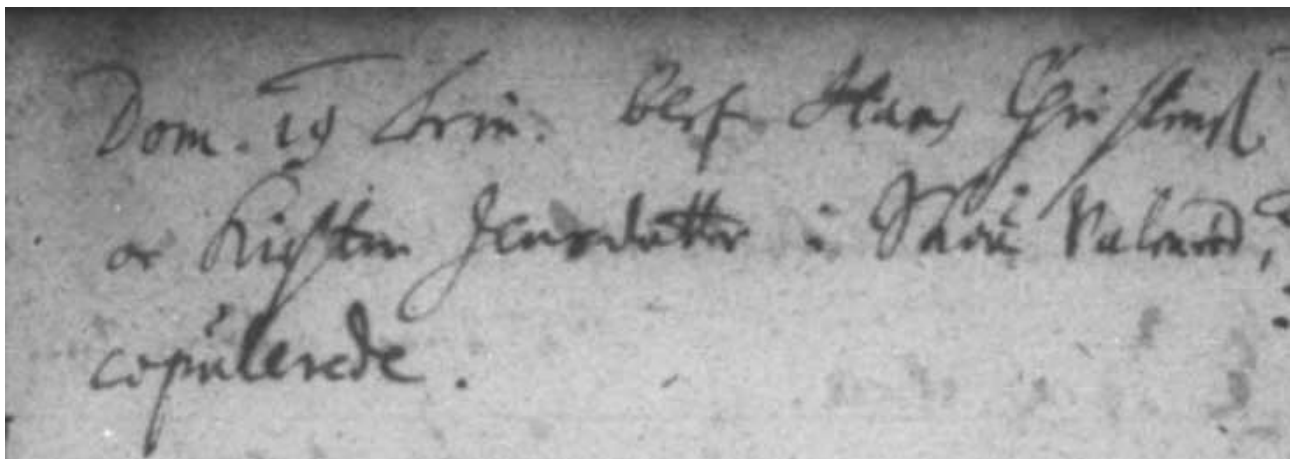 Dom. 19 Trin. blef Hans Christens.
oc Kirsten Jensdatter i Skou Valmod,
copulerede.